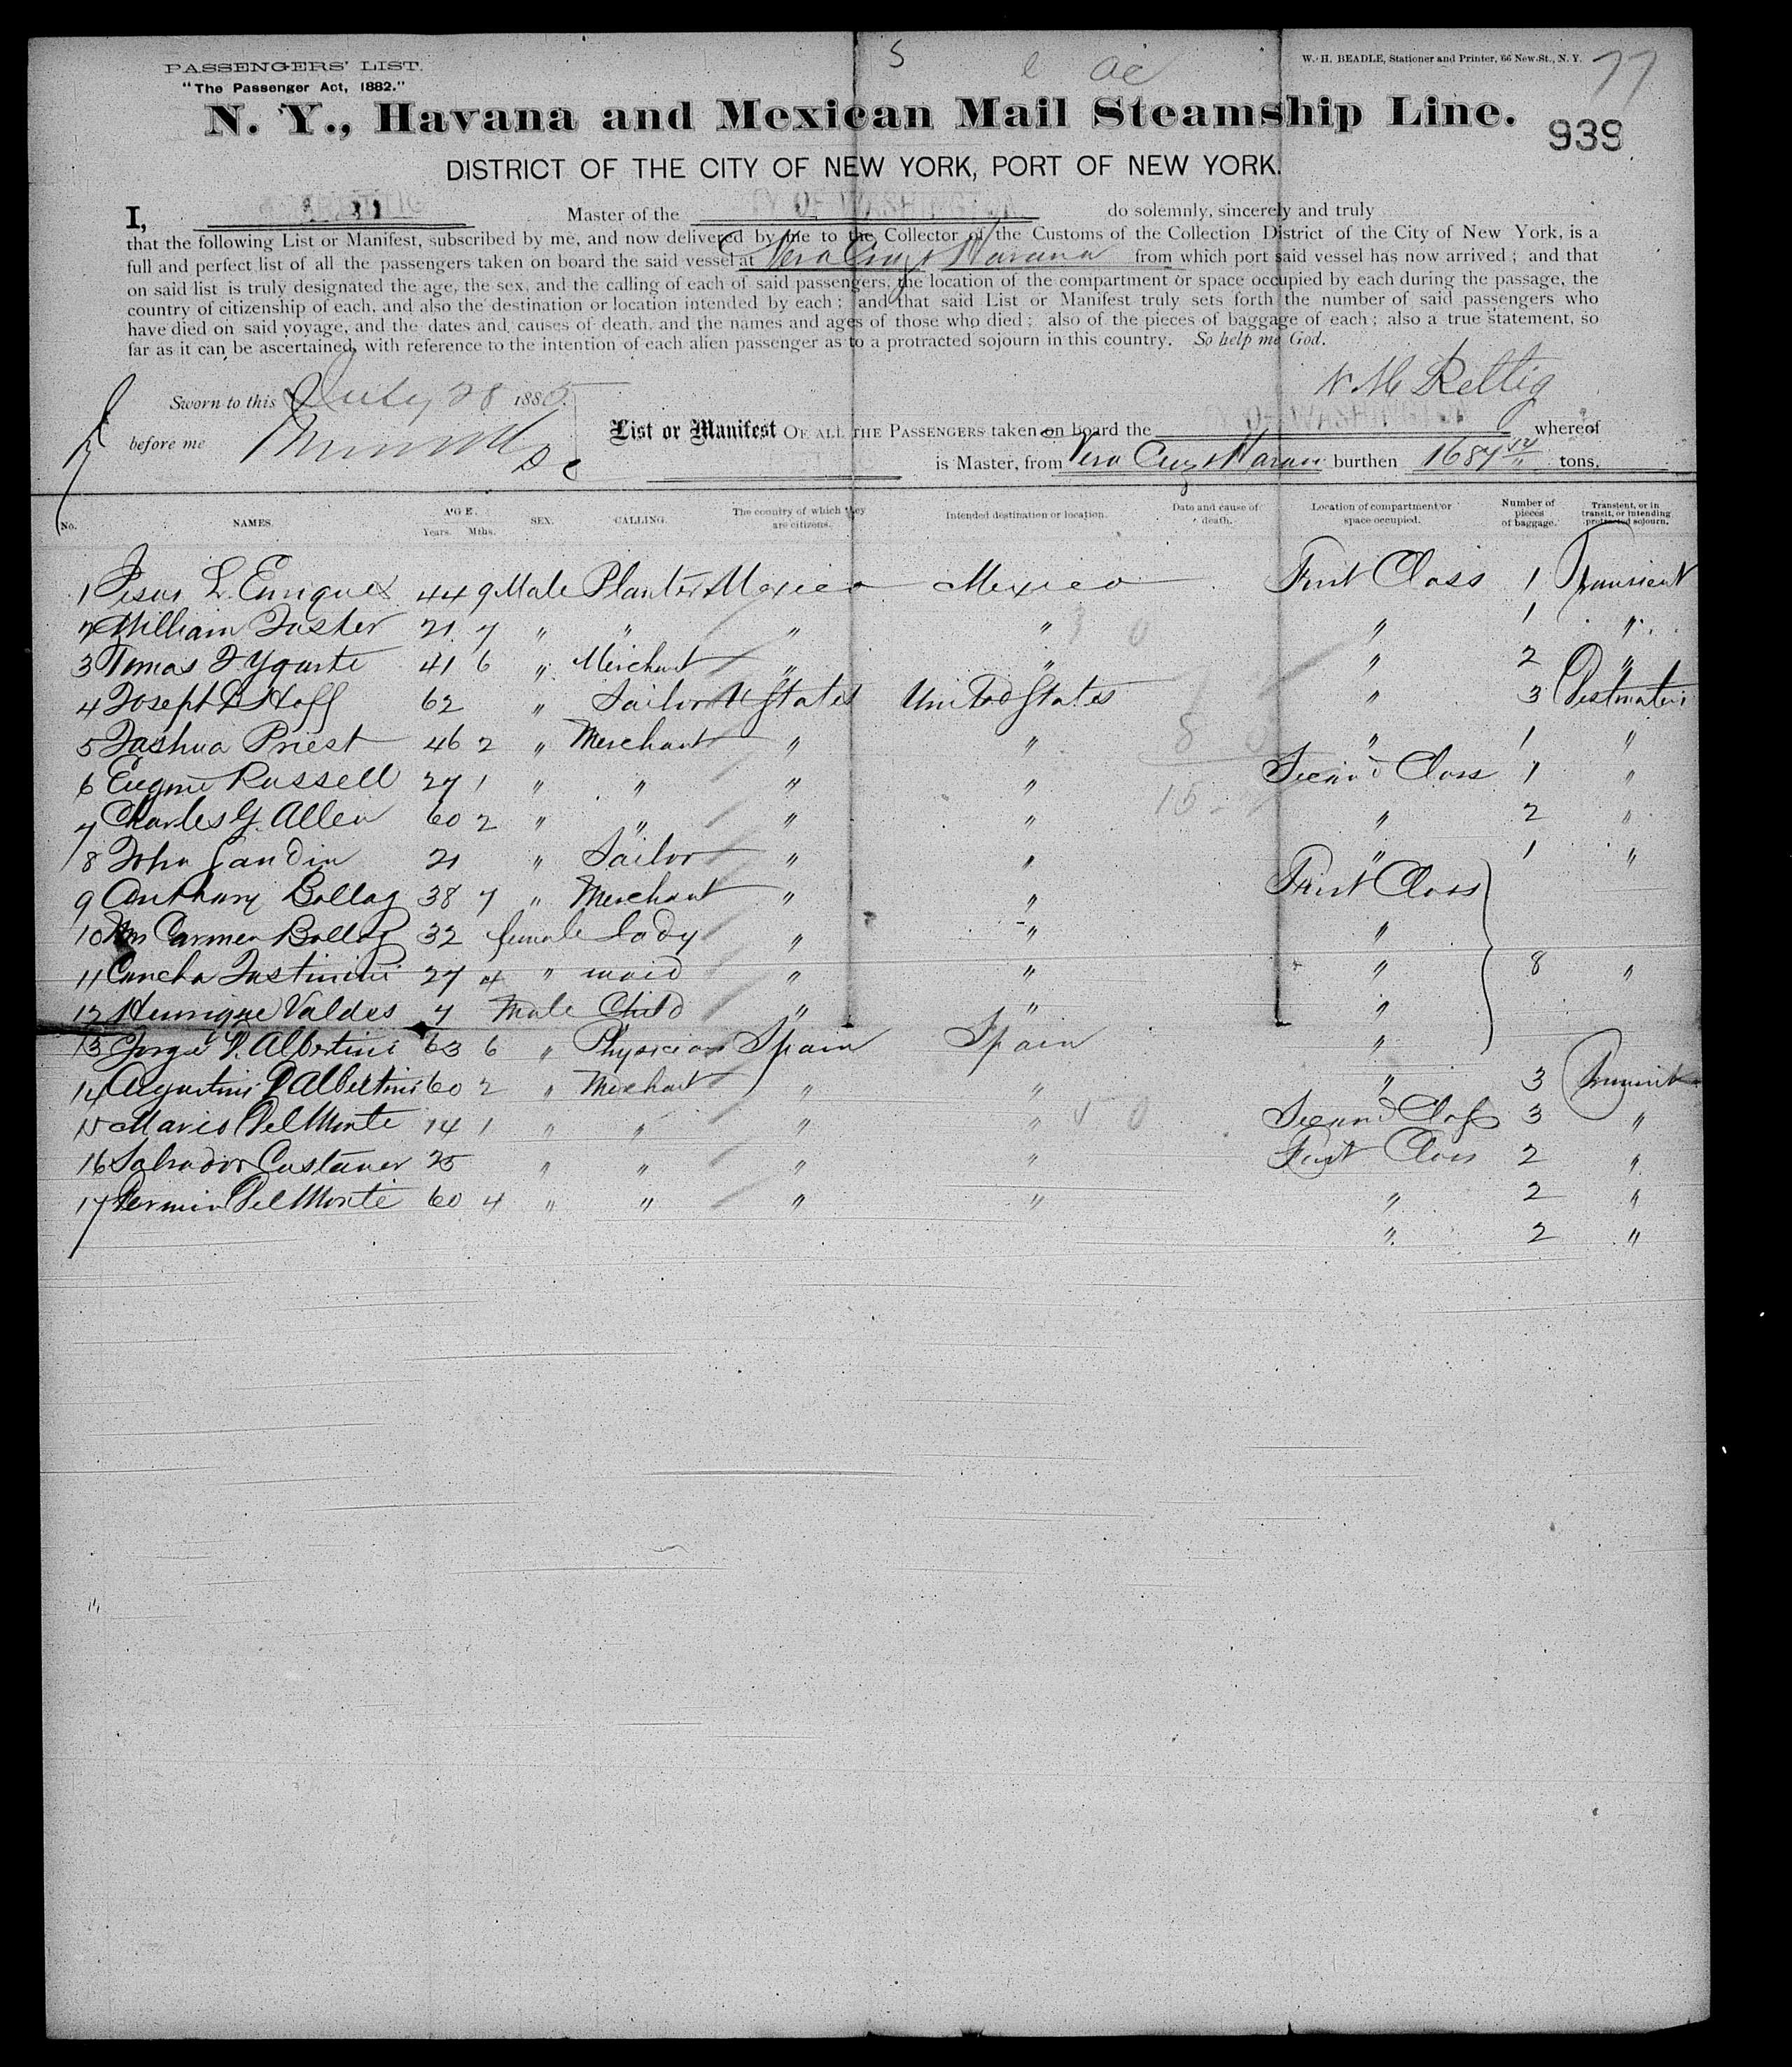 77
PASSENGERS' LIST.
"The Passenger Act, 1882."
W. H. BEADLE, Stationer and Printer, 66 New-St., N. Y.
N. Y., Havana and Mexican Mail Steamship Line.
939
DISTRICT OF THE CITY OF NEW YORK, PORT OF NEW YORK.
I, RETTIG Master of the CITY OF WASHINGTON do solemnly, sincerely and truly
that the following List or Manifest, subscribed by me, and now delivered by me to the Collector of the Customs of the Collection District of the City of New York, is a
full and perfect list of all the passengers taken on board the said vessel at Vera Cruz & Havana from which port said vessel has now arrived; and that
on said list is truly designated the age, the sex, and the calling of each of said passengers, the location of the compartment or space occupied by each during the passage, the
country of citizenship of each, and also the destination or location intended by each; and that said List or Manifest truly sets forth the number of said passengers who
have died on said voyage, and the dates and causes of death, and the names and ages of those who died; also of the pieces of baggage of each; also a true statement, so
far as it can be ascertained, with reference to the intention of each alien passenger as to a protracted sojourn in this country. So help me God.
Sworn to this July 28 1885.
Rettig
before me
List or Manifest OF ALL THE PASSENGERS taken on board the CITY OF WASHINGTON whereof
is Master, from Vera Cruz & Havana burthen 1684 tons.
No. NAMES. AGE. Years. Mths. SEX. CALLING. The country of which they are citizens. Intended destination or location. Date and cause of death. Location of compartment or space occupied. Number of pieces of baggage. Transient, or in transit, or intending protracted sojourn.
1 Jesus L. Enriquez 44 9 Male Planter Mexico Mexico First Class 1 Transient
2 William Foster 21 7 " " " " " 1 "
3 Tomas F Ygarte 41 6 " Merchant " " " 2 "
4 Joseph D Hoff 62 " Sailor U States United States " 3 Destination
5 Joshua Priest 46 2 " Merchant " " " 1 "
6 Eugene Russell 27 1 " " " " Second Class 1 "
7 Charles G. Allen 60 2 " " " " " 2 "
8 John 21 " Sailor " " " 1 "
9 Anthony Bollag 38 7 " Merchant " " First Class
10 Mrs Carmen Bollag 32 female lady " " "
11 Concha Justiniani 27 4 " maid " " " 8 "
12 Henrique Valdes 7 Male Child " " "
13 Jorge D. Albertini 63 6 " Physician Spain Spain "
14 Augustini D Albertini 60 2 " Merchant " " " 3 Transient
15 Mario Del Monte 14 1 " " " " Second Class 3 "
16 Salvador Castaner 25 " " " " First Class 2 "
17 Fermin Del Monte 60 4 " " " " " 2 "
" 2 "